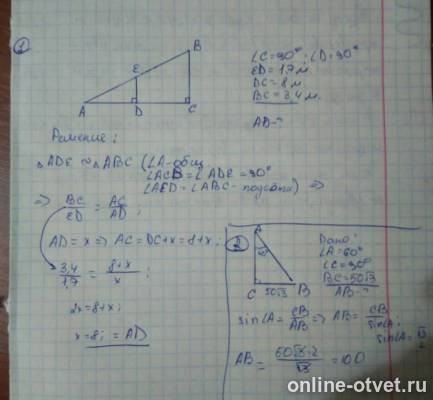 ①
A
E
B
D
C
∠C=90°; ∠D=90°
ED=1,7 м.
DC=8 м.
BC=3,4 м.
AD-?
Решение:
△ADE ≈ △ABC (∠A-общ
∠ACB=∠ADE=90°
∠AED=∠ABC-
⇒ BC/ED = AC/AD;
AD=x ⇒ AC=DC+x=8+x;
3,4/1,7 = 8+x/x;
2x=8+x;
x=8; =AD
②
A
60°
C
50√3
B
Дано:
∠A=60°
∠C=90°
BC=50√3
AB-?
sin∠A = CB/AB ⇒ AB= CB/sin∠A;
sin∠A= √3/2
AB = 50√3·2/√3 = 100
online-otvet.ru